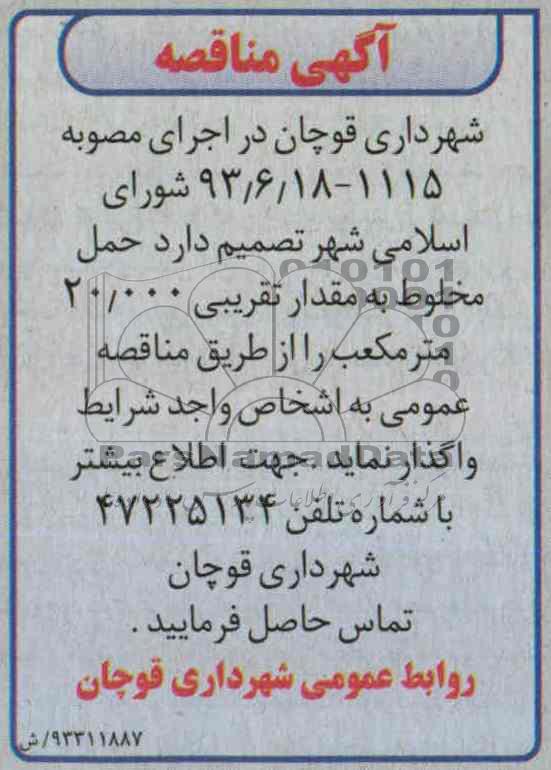 آگهی مناقصه
شهرداری قوچان در اجرای مصوبه
۱۱۱۵-۹۳/۶/۱۸ شورای
اسلامی شهر تصمیم دارد حمل
مخلوط به مقدار تقریبی ۲۰/۰۰۰
مترمکعب را از طریق مناقصه
عمومی به اشخاص واجد شرایط
واگذار نماید .جهت اطلاع بیشتر
با شماره تلفن ۴۷۲۲۵۱۳۴
شهرداری قوچان
تماس حاصل فرمایید .
روابط عمومی شهرداری قوچان
۹۳۳۱۱۸۸۷/ش
ParsNamadData